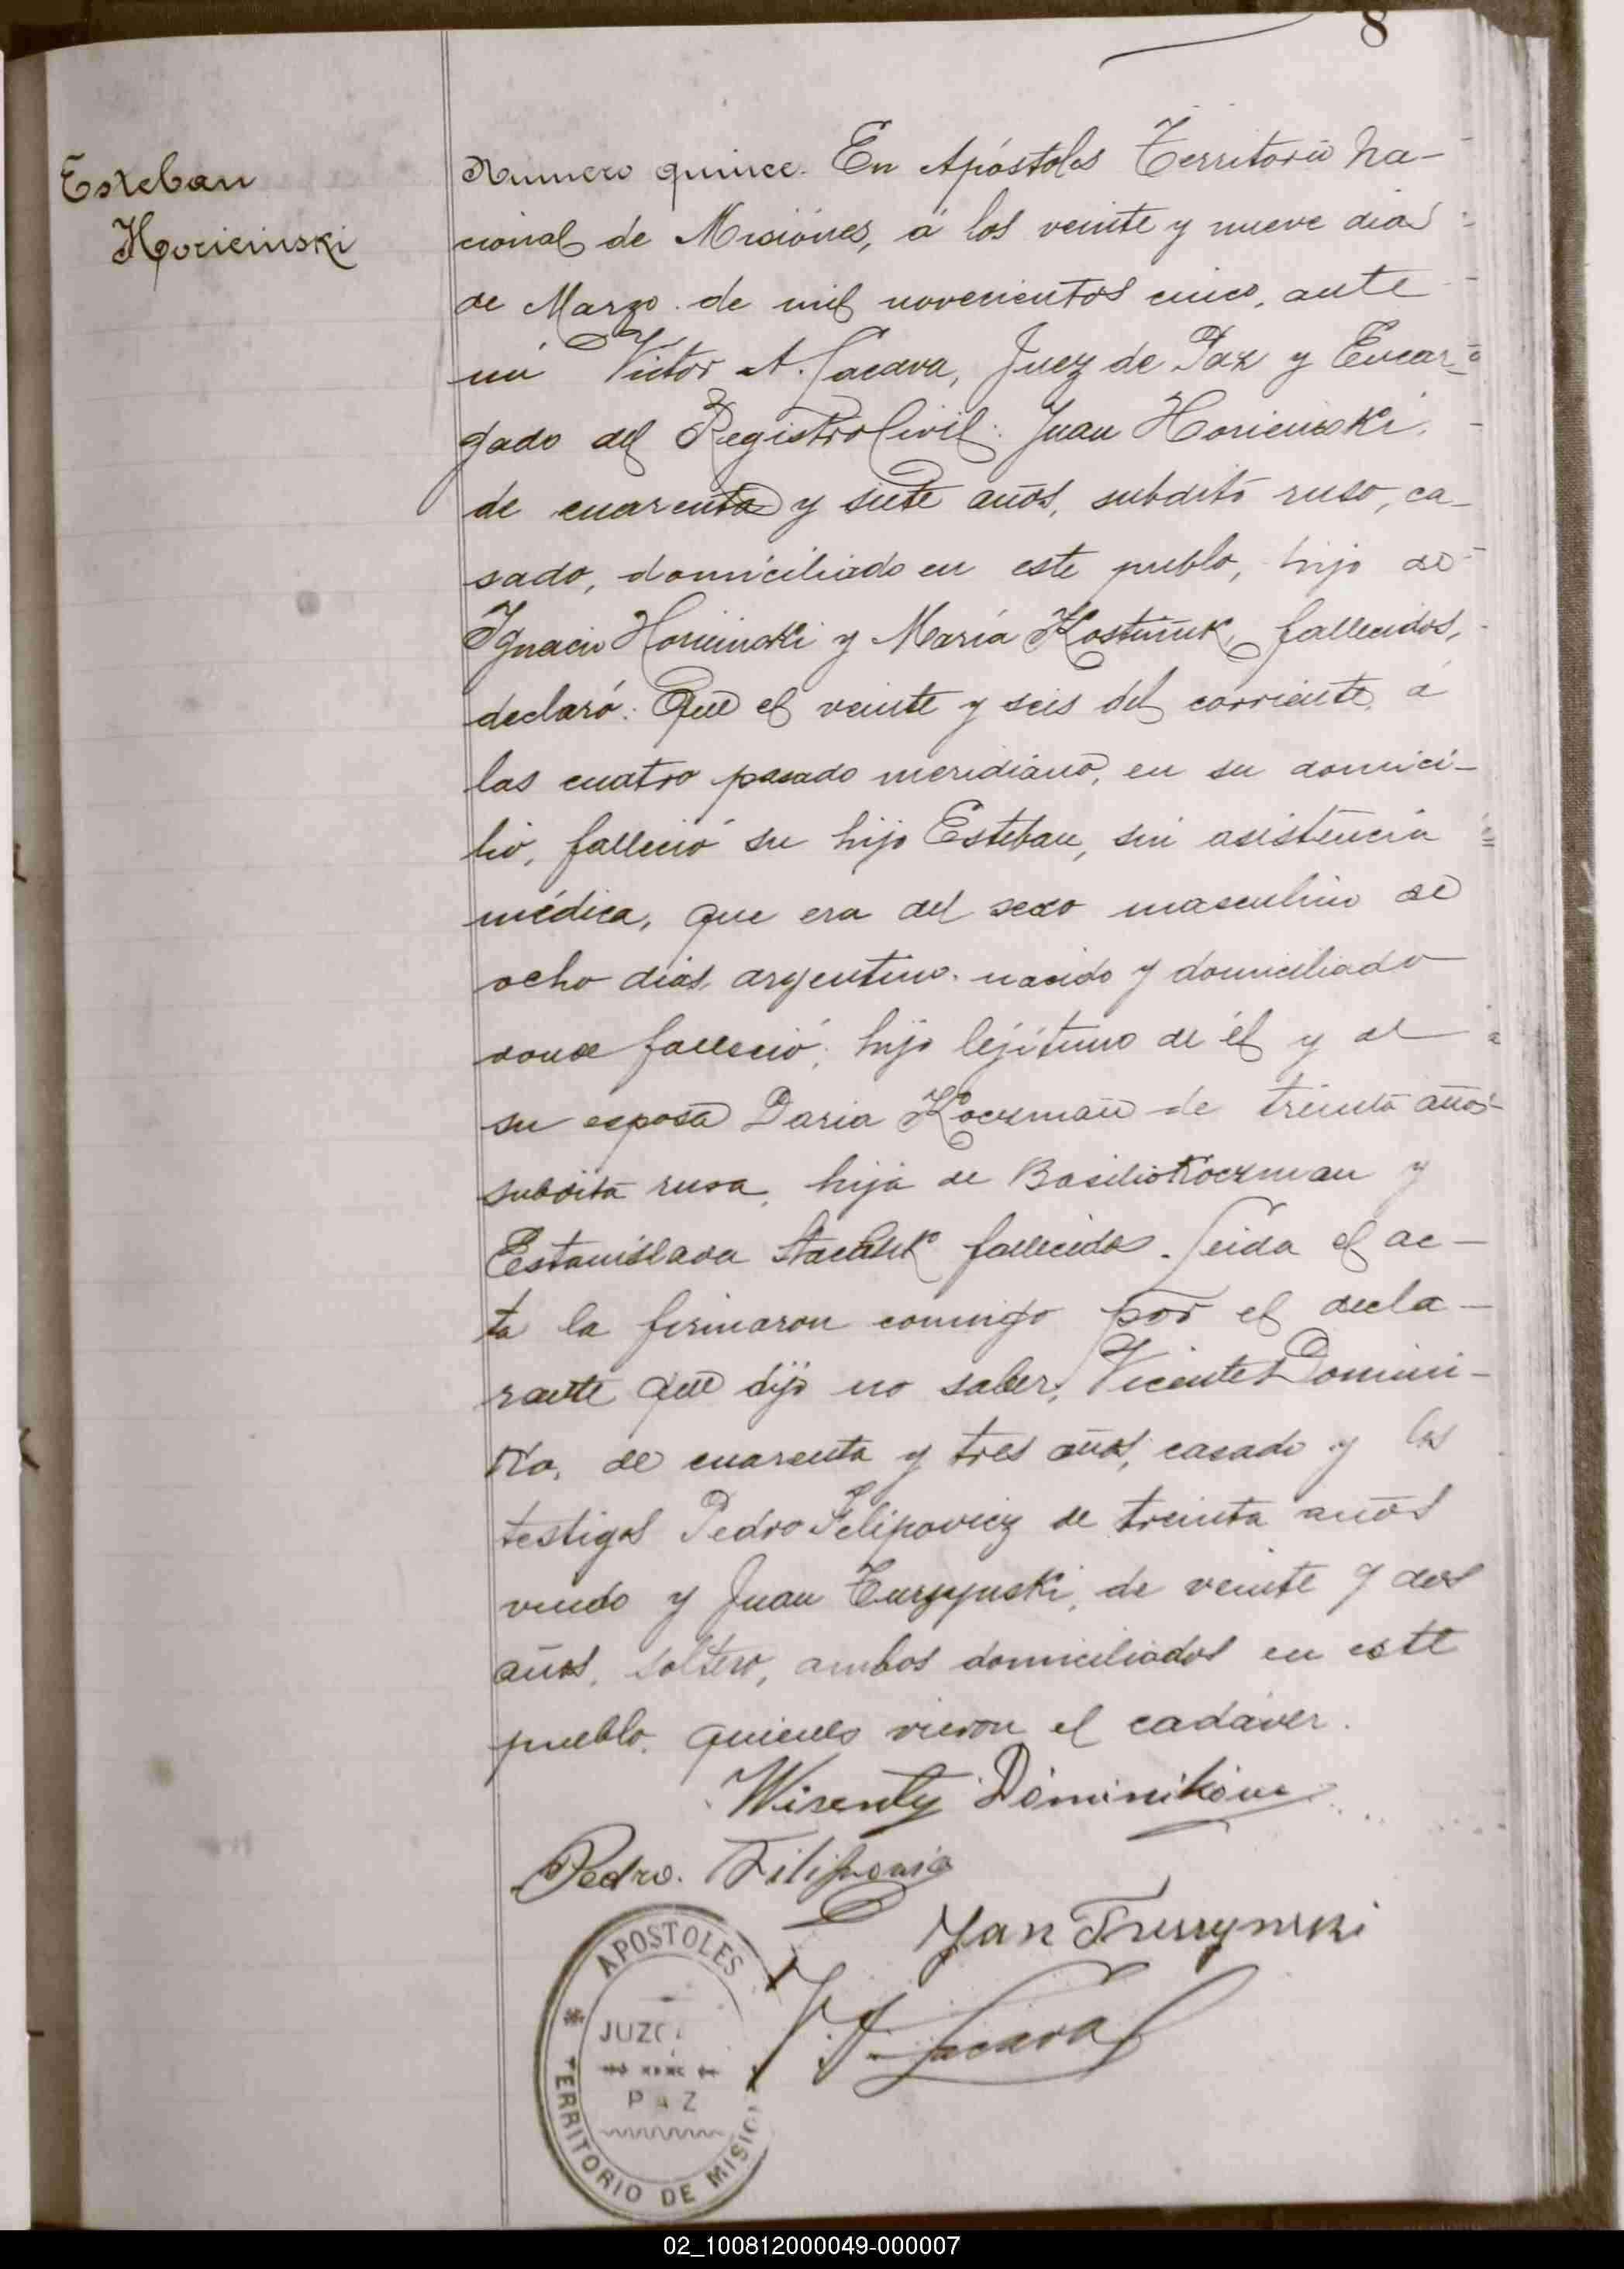 8
Esteban
Horieinski
Numero quince. En Apóstoles Territorio Na-
cional de Misiones, á los veinte y nueve dias
de Marzo de mil novecientos cinco, ante
mi Victor A. Lacava, Juez de Paz y Encar-
gado del Registro Civil: Juan Horieinski,
de cuarenta y siete años, subdito ruso, ca-
sado, domiciliado en este pueblo, hijo de
Ignacio Horieinski y María Kostiuk, fallecidos,
declaró: Que el veinte y seis del corriente á
las cuatro pasado meridiano, en su domici-
lio, falleció su hijo Esteban, sin asistencia
médica, que era del sexo masculino de
ocho dias, argentino, nacido y domiciliado
donde falleció; hijo lejítimo de él y de
su esposa Daria Koczman de treinta años
subdita rusa, hija de Basilio Koczman y
Estanislava fallecidos. Leida el ac-
ta la firmaron conmigo por el decla-
rante que dijo no saber, Vicente Domini-
ko, de cuarenta y tres años, casado y los
testigos Pedro Felipovicz de treinta años
viudo y Juan de veinte y dos
años, soltero, ambos domiciliados en este
pueblo, quienes vieron el cadáver.
Wizenty Dominikow
Pedro. Filipovic
Jan
V. A. Lacava
APOSTOLES
JUZG
PAZ
TERRITORIO DE MISIO
02_100812000049-000007